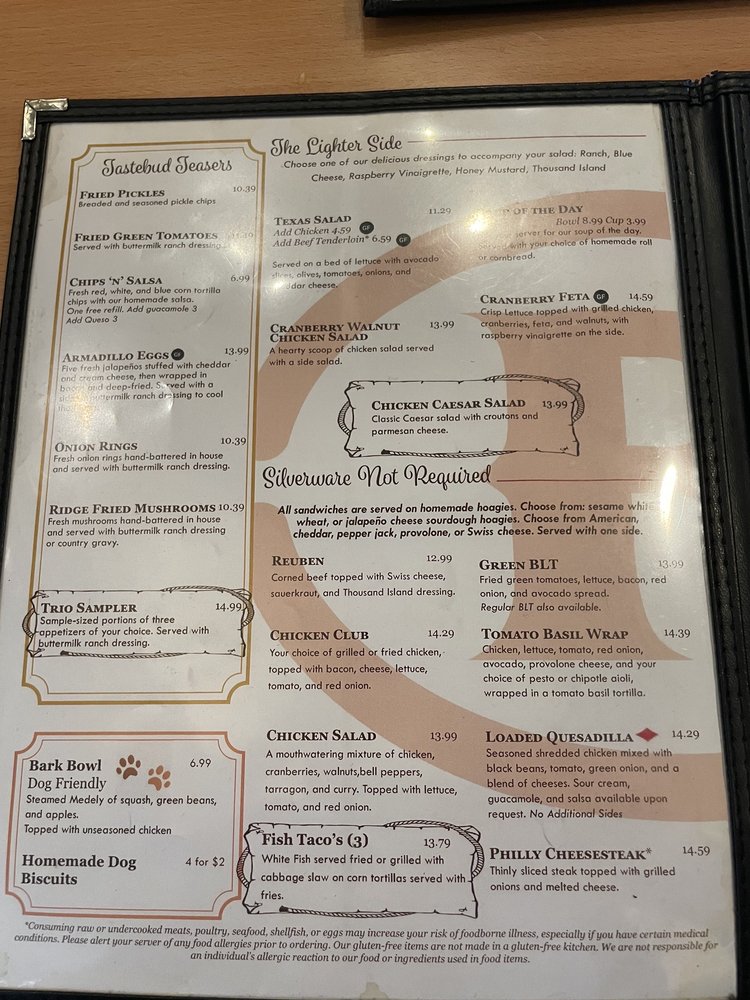 Tastebud Teasers
FRIED PICKLES 10.39
Breaded and seasoned pickle chips
FRIED GREEN TOMATOES
Served with buttermilk ranch dressing
CHIPS 'N' SALSA 6.99
Fresh red, white, and blue corn tortilla
chips with our homemade salsa.
One free refill. Add guacamole 3
Add Queso 3
ARMADILLO EGGS GF 13.99
Five fresh jalapeños stuffed with cheddar
and cream cheese, then wrapped in
bacon and deep-fried. Served with a
buttermilk ranch dressing to cool
ONION RINGS 10.39
Fresh onion rings hand-battered in house
and served with buttermilk ranch dressing.
RIDGE FRIED MUSHROOMS 10.39
Fresh mushrooms hand-battered in house
and served with buttermilk ranch dressing
or country gravy.
TRIO SAMPLER 14.99
Sample-sized portions of three
appetizers of your choice. Served with
buttermilk ranch dressing.
Bark Bowl 6.99
Dog Friendly
Steamed Medely of squash, green beans,
and apples.
Topped with unseasoned chicken
Homemade Dog 4 for $2
Biscuits
The Lighter Side
Choose one of our delicious dressings to accompany your salad: Ranch, Blue
Cheese, Raspberry Vinaigrette, Honey Mustard, Thousand Island
TEXAS SALAD 11.29
Add Chicken 4.59 GF
Add Beef Tenderloin* 6.59 GF
Served on a bed of lettuce with avocado
slices, olives, tomatoes, onions, and
cheese.
OF THE DAY
Bowl 8.99 Cup 3.99
server for our soup of the day.
Served with your choice of homemade roll
or cornbread.
CRANBERRY WALNUT 13.99
CHICKEN SALAD
A hearty scoop of chicken salad served
with a side salad.
CRANBERRY FETA GF 14.59
Crisp Lettuce topped with grilled chicken,
cranberries, feta, and walnuts, with
raspberry vinaigrette on the side.
CHICKEN CAESAR SALAD 13.99
Classic Caesar salad with croutons and
parmesan cheese.
Silverware Not Required
All sandwiches are served on homemade hoagies. Choose from: sesame white
wheat, or jalapeño cheese sourdough hoagies. Choose from American,
cheddar, pepper jack, provolone, or Swiss cheese. Served with one side.
REUBEN 12.99
Corned beef topped with Swiss cheese,
sauerkraut, and Thousand Island dressing.
GREEN BLT 13.99
Fried green tomatoes, lettuce, bacon, red
onion, and avocado spread.
Regular BLT also available.
CHICKEN CLUB 14.29
Your choice of grilled or fried chicken,
topped with bacon, cheese, lettuce,
tomato, and red onion.
TOMATO BASIL WRAP 14.39
Chicken, lettuce, tomato, red onion,
avocado, provolone cheese, and your
choice of pesto or chipotle aioli,
wrapped in a tomato basil tortilla.
CHICKEN SALAD 13.99
A mouthwatering mixture of chicken,
cranberries, walnuts,bell peppers,
tarragon, and curry. Topped with lettuce,
tomato, and red onion.
LOADED QUESADILLA 14.29
Seasoned shredded chicken mixed with
black beans, tomato, green onion, and a
blend of cheeses. Sour cream,
guacamole, and salsa available upon
request. No Additional Sides
Fish Taco's (3) 13.79
White Fish served fried or grilled with
cabbage slaw on corn tortillas served with
fries.
PHILLY CHEESESTEAK* 14.59
Thinly sliced steak topped with grilled
onions and melted cheese.
*Consuming raw or undercooked meats, poultry, seafood, shellfish, or eggs may increase your risk of foodborne illness, especially if you have certain medical
conditions. Please alert your server of any food allergies prior to ordering. Our gluten-free items are not made in a gluten-free kitchen. We are not responsible for
an individual's allergic reaction to our food or ingredients used in food items.